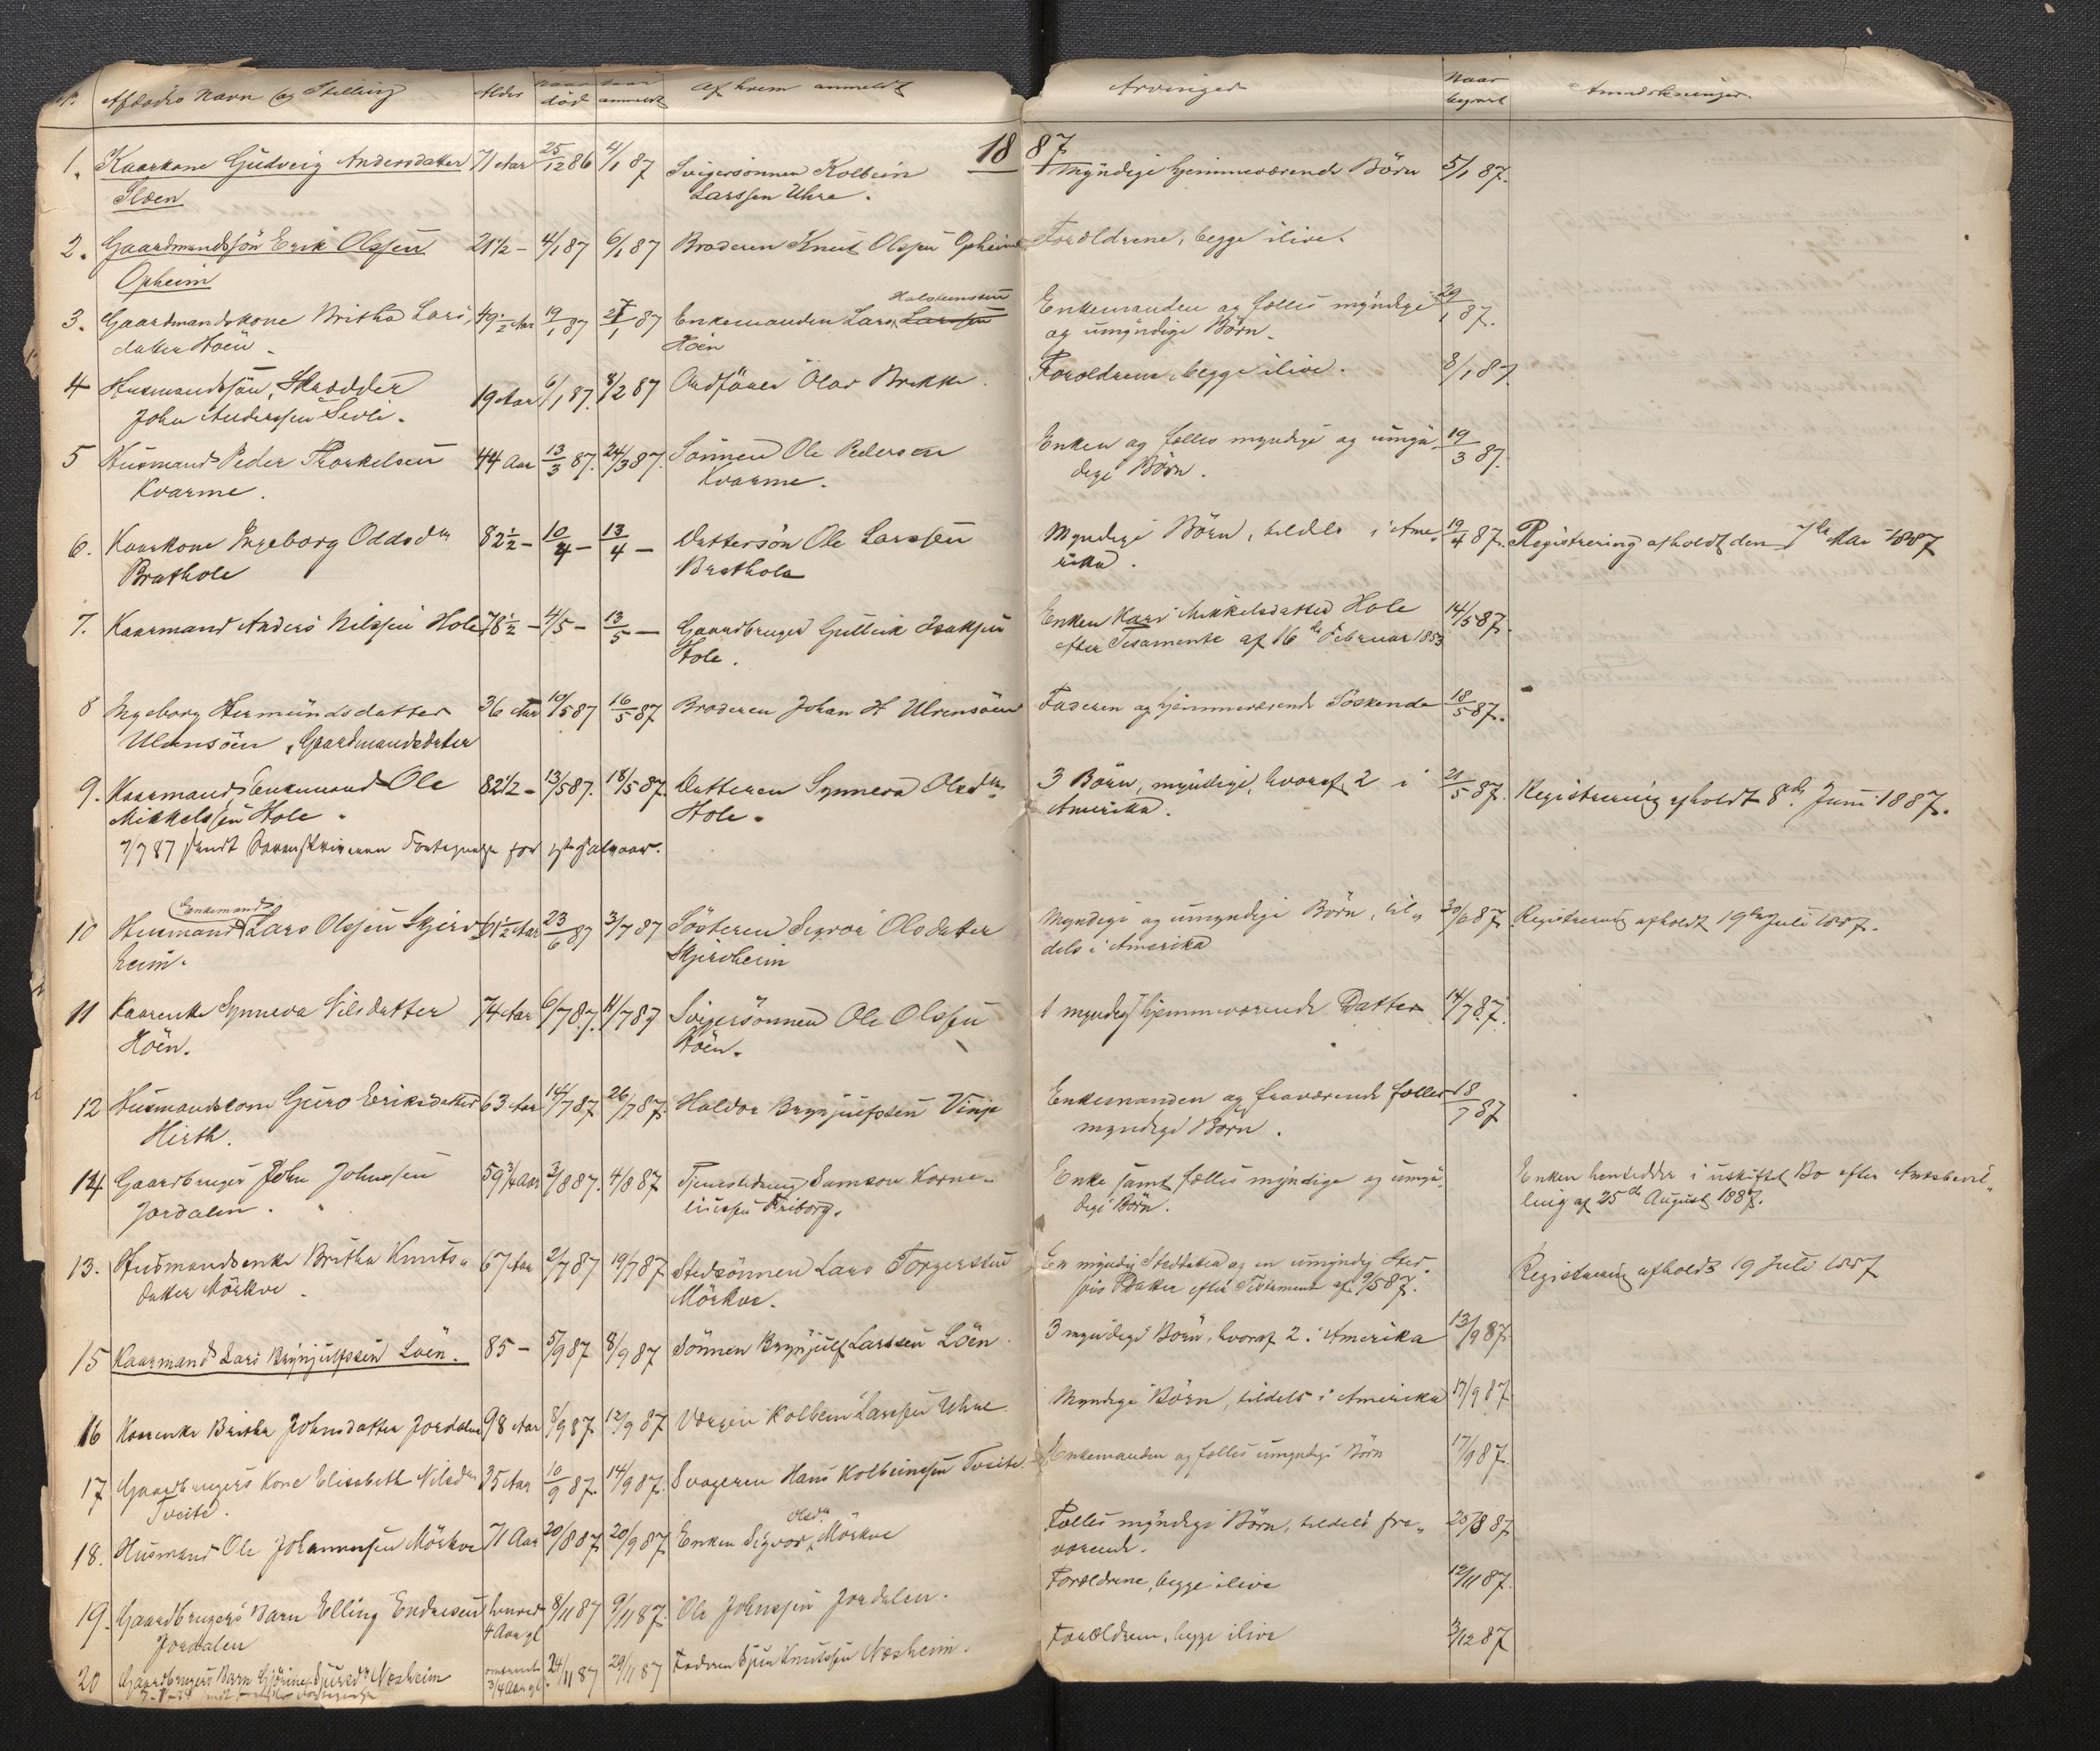 Nr. Afdødes Navn og Stilling Alder Naar død Naar anmeldt Af hvem anmeldt Arvinger Naar begravet Anmærkninger.
1887
1. Kaarkone Gudveig Andersdatter 71 Aar 25/12 86 4/1 87 Svigersønnen Kolbein Myndige hjemmeværende Børn 5/1 87.
Larssen Uhre.
2. Gaardmandssøn Erik Olssen 21 1/2 - 4/1 87 6/1 87 Broderen Knut Olssen Opheim Forældrene, begge ilive.
Opheim
Holsteinssen
3. Gaardmandskone Britha Lars, 49 1/2 Aar 19/1 87 27/1 87 Enkemanden Lars Larssen Enkemanden og fælles myndige 29/1 87.
datter Høen Høen og umyndige Børn.
4 Husmandssøn, Skrædder 19 Aar 6/1 87. 8/2 87 Ordfører Olav Brekke. Forældrene, begge ilive. 8/1 87
John Anderssen Sevle.
5 Husmand Peder Thorkelsen 44 Aar 13/3 87. 24/3 87. Sønnen Ole Pedersen Enken og fælles myndige og umyn- 19/3 87.
Kvarme. Kvarme. dige Børn.
6. Kaarkone Ingeborg Oddsdtr 82 1/2 - 10/4 - 13/4 - Dattersøn Ole Larssen Myndige Børn, tildels i Ame- 19/4 87. Registrering afholdt den 7de Mai 1887
Brathole Brathole rika.
7. Kaarmand Anders Nilssen Hole 78 1/2 - 4/5 - 13/5 - Gaardbruger Gulleik Isaksen Enken Kari Mikkelsdatter Hole 14/5 87.
Hole. efter Tesamente af 16de Februar 1853
8 Ingeborg Hermundsdatter 36 Aar 10/5 87 16/5 87 Broderen Johan H Ulvensøen Faderen og hjemmeværende Søskende 18/5 87.
Ulvensøen, Gaardmandsdatter
9. Kaarmand, Enkemand Ole 82 1/2 - 13/5 87. 18/5 87. Datteren Synneva Olsdtr. 3 Børn, myndige, hvoraf 2 i 21/5 87. Registrering afholdt 8de Juni 1887.
Mikkelssen Hole. Hole. Amerika.
7/7 87 sendt Sorenskriveren Fortegnelse for 1ste Halvaar.
Enkemand
10 Husmand Lars Olssen Skjerv- 61 1/2 Aar 23/6 87 3/7 87 Søsteren Sigvor Olsdatter Myndige og umyndige Børn, til- 30/6 87. Registrering afholdt 19de Juli 1887.
heim. Skjervheim dels i Amerika
11 Kaarenke Synneva Nilsdatter 74 Aar 6/7 87. 11/7 87 Svigersønnen Ole Olssen 1 myndig hjemmeværende Datter 14/7 87.
Høen. Høen.
12 Husmandskone Guro Eriksdatter 63 Aar 14/7 87 26/7 87. Haldor Brynjulfssen Vinje Enkemanden og fraværende fælles 18/7 87
Hirth. myndige Børn.
14 Gaardbruger John Johnssen 59 3/4 Aar 3/8 87. 4/8 87 Tjenestedreng Samson Korne- Enke samt fælles myndige og umyn- Enken hensidder i uskiftet Bo efter Amtsbevil-
Jordalen. liussen Friborg. dige Børn. ling af 25de August 1887.
13. Husmandsenke Britha Knuts- 67 Aar 2/7 87 19/7 87 Stedsønnen Lars Torgerssen En myndig Steddatter og en umyndig Sted- Registrering afholdt 19 Juli 1887
datter Mørkve. Mørkve. søns Datter efter Testament af 9/5 87.
15 Kaarmand Lars Brynjulfssen Løen. 85 - 5/9 87 8/9 87 Sønnen Brynjulf Larssen Løen. 3 myndige Børn, hvoraf 2 i Amerika 13/9 87.
16 Kaarenke Britha Johnsdatter Jordalen 98 Aar 8/9 87 12/9 87 Værgen Kolbein Larssen Uhre Myndige Børn, tildels i Amerika 17/9 87.
17 Gaardbrugers Kone Elisabeth Nilsdtr 35 Aar 10/9 87. 14/9 87. Svogeren Hans Kolbeinssen Tveite. Enkemanden og fælles umyndige Børn 17/9 87.
Tveite. Olsdtr
18. Husmand Ole Johannessen Mørkve 71 Aar 20/8 87 20/9 87 Enken Sigvor Mørkve Fælles myndige Børn, tildels fra- 25/8 87
værende.
19. Gaardbrugers Barn Elling Endresen henved 8/11 87 9/11 87. Ole Johnssen Jordalen. Forældrene, begge ilive 12/11 87.
Jordalen 4 Aar gl
20 Gaardbrugers Barn Sjursdtr Næsheim omtrent 24/11 87 29/11 87 Faderen Sjur Knutssen Næsheim. Forældrene, begge ilive 3/12 87
3/4 Aar gl